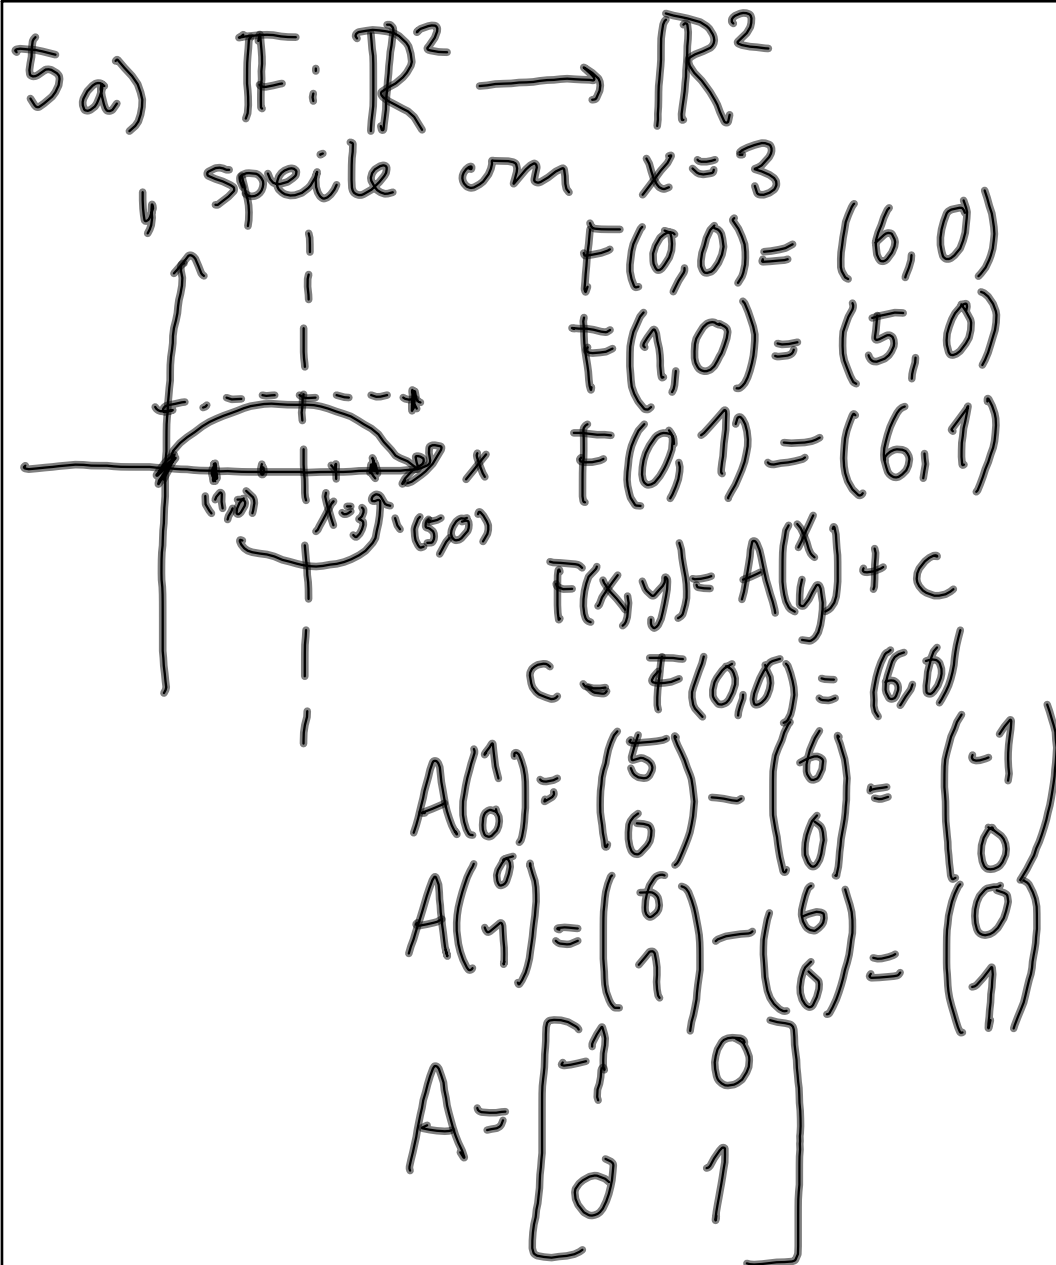 5 a) F: ℝ² ⟶ ℝ²
speile om x = 3
y
F(0,0) = (6,0)
F(1,0) = (5,0)
F(0,1) = (6,1)
x
(1,0) x=3 (5,0)
F(x,y) = A(x y) + c
c = F(0,0) = (6,0)
A(1 0) = (5 0) - (6 0) = (-1 0)
A(0 1) = (6 1) - (6 0) = (0 1)
A = [-1 0
0 1]